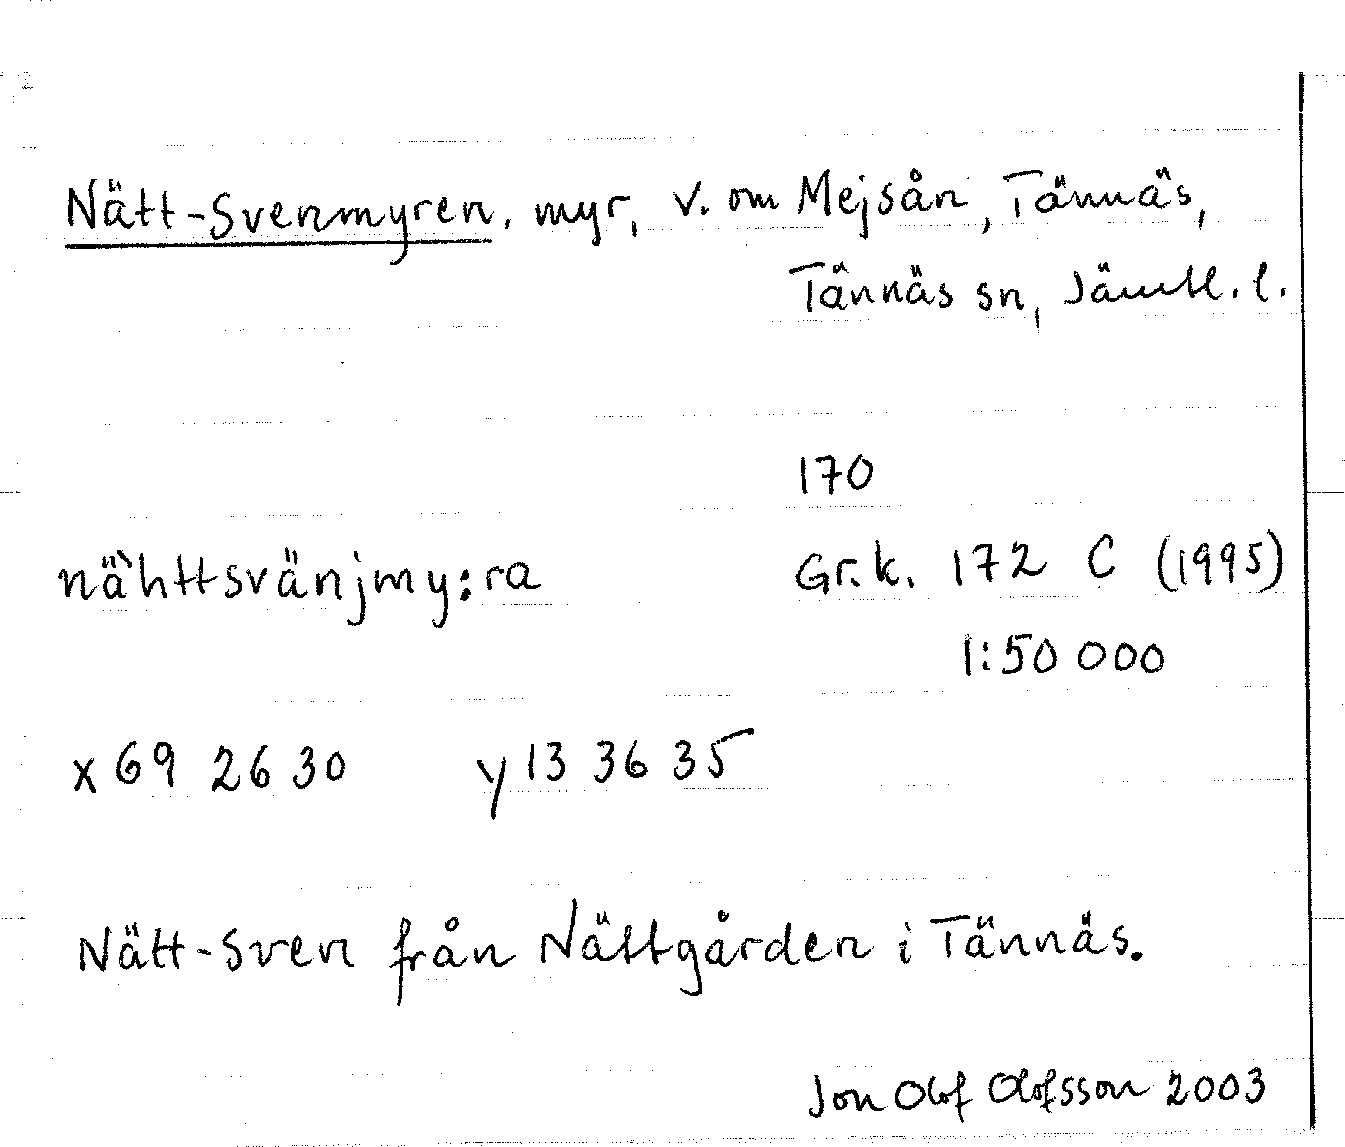 Nätt-Svenmyren, myr, V. om Mejsån, Tännäs,
Tännäs sn, Jämtl. l.
170
nä̀httsvänjmy:ra Gr.k. 172 C (1995)
1:50 000
x 69 26 30 y 13 36 35
Nätt-Sven från Nättgården i Tännäs.
Jon Olof Olofsson 2003